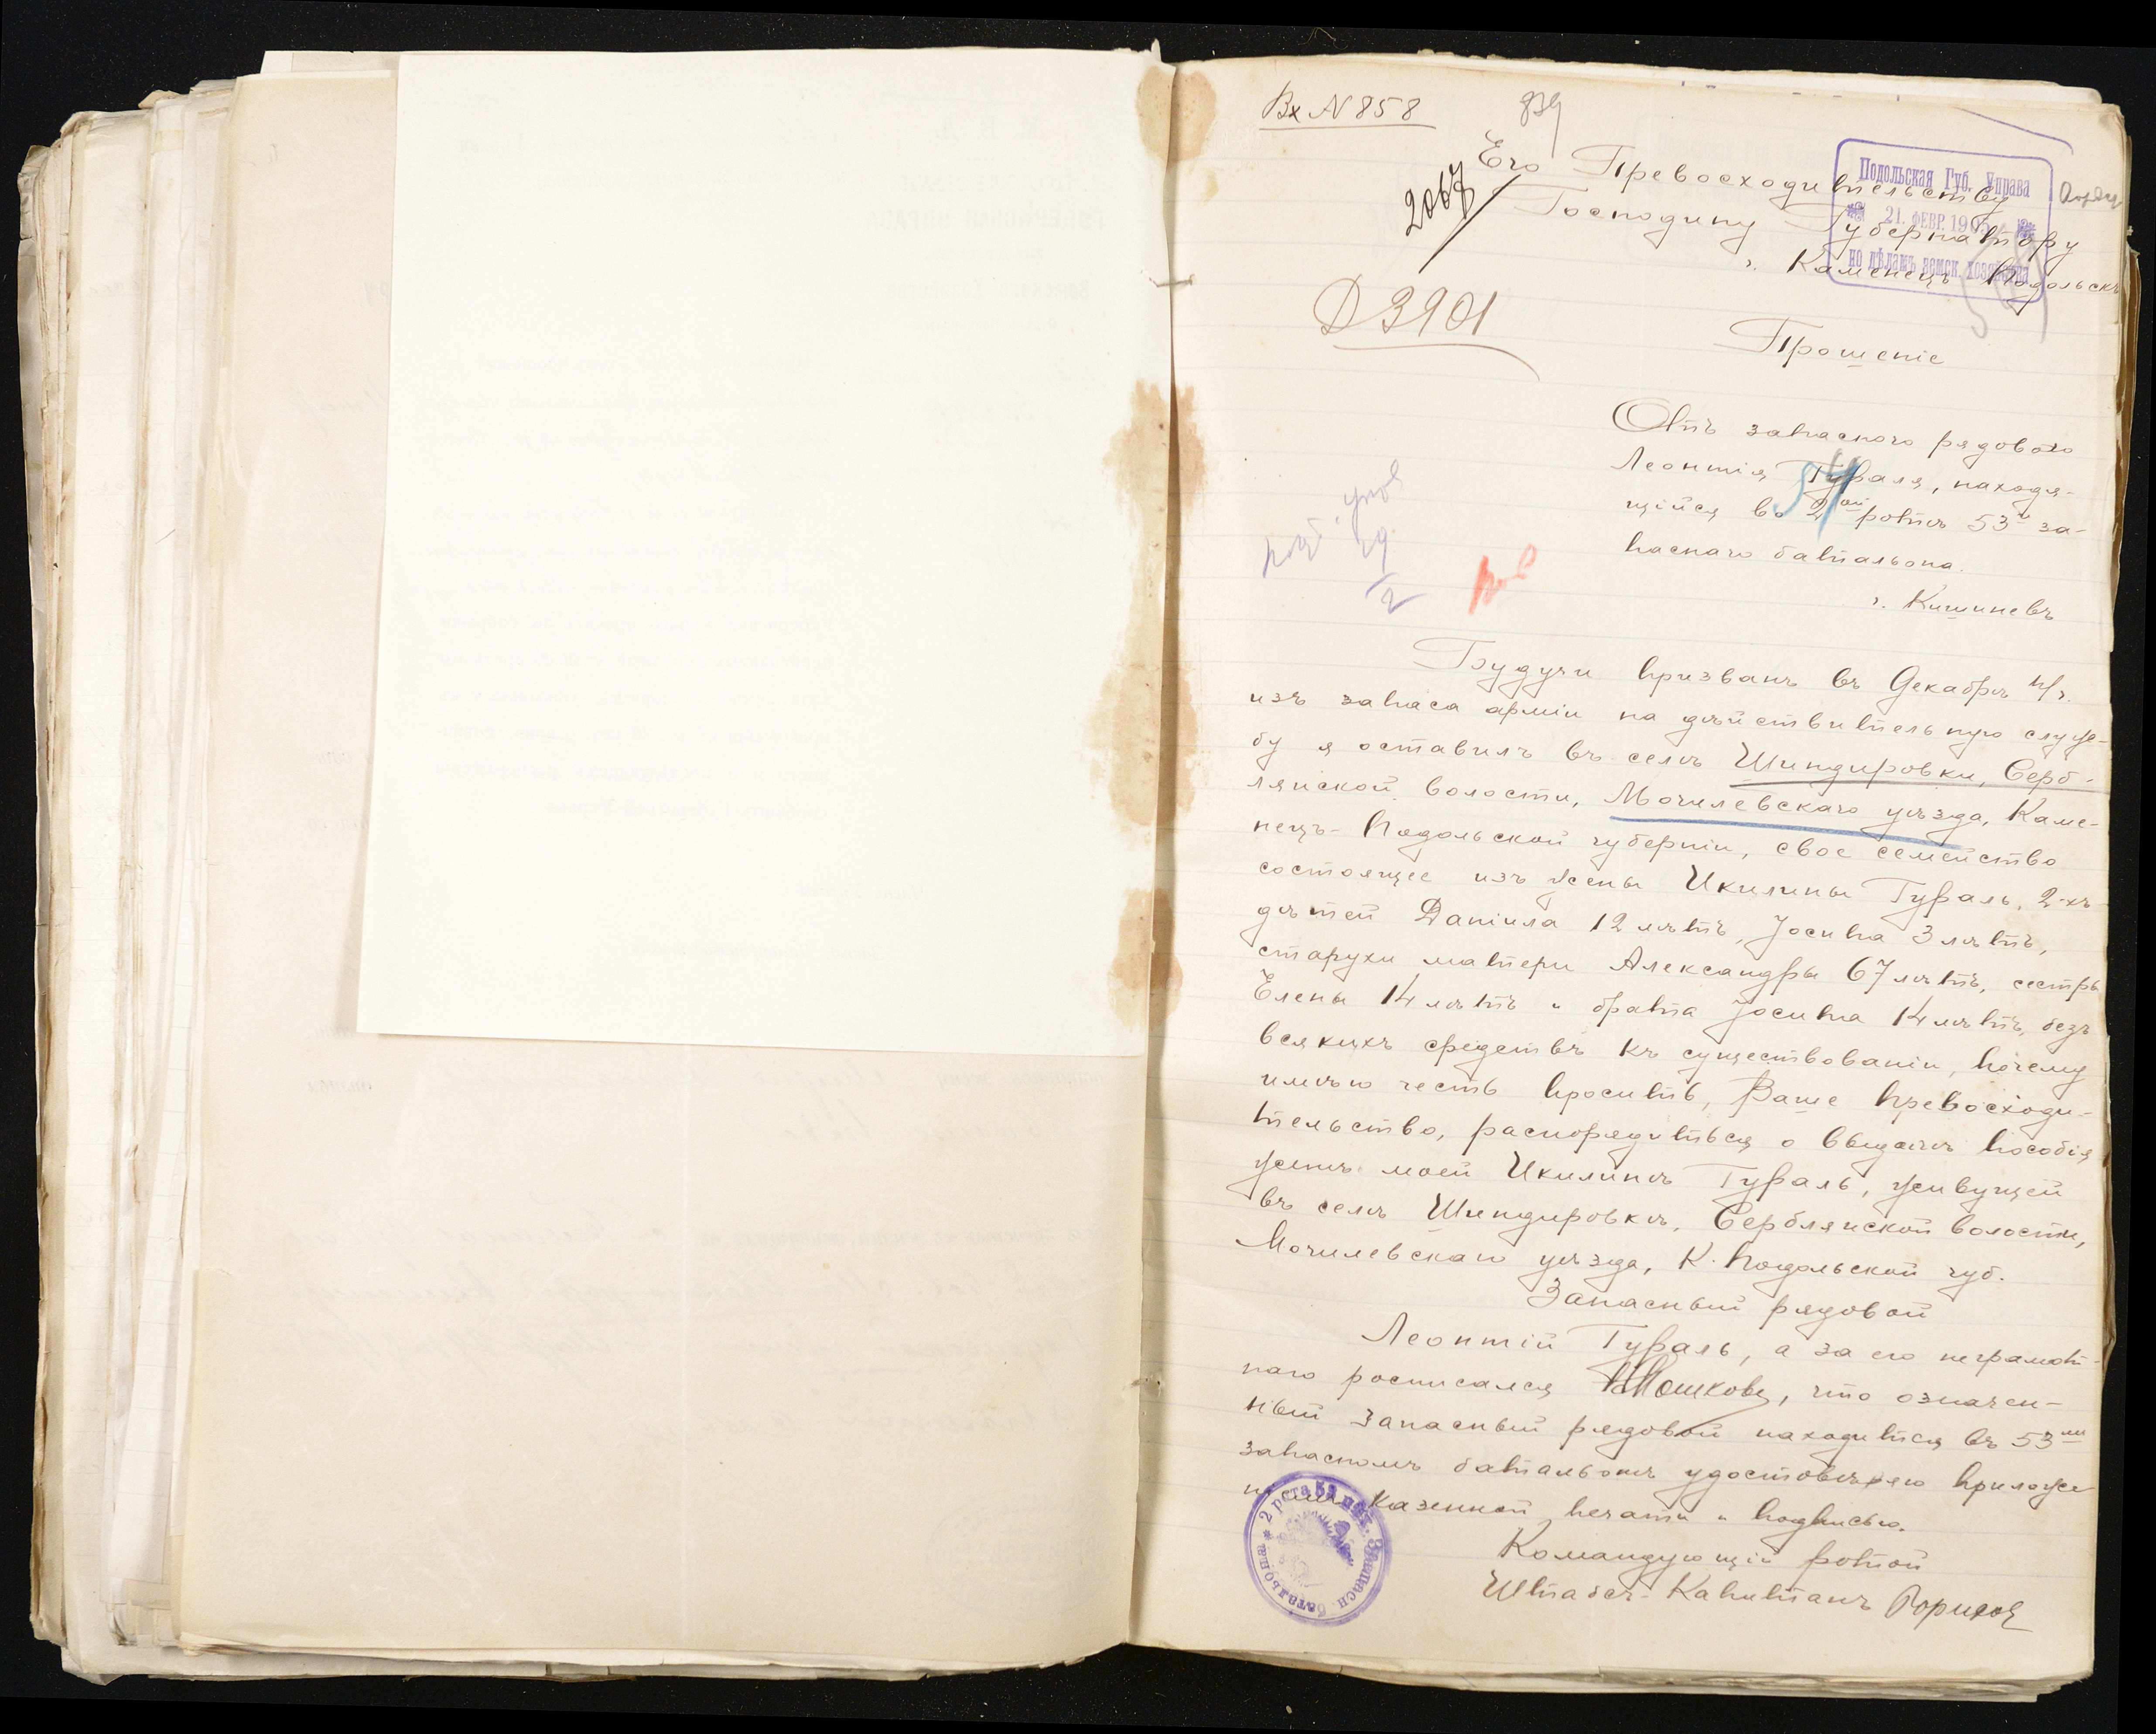 Вх N 858
839
2067
Его Превосходительству
Господину Губернатору
г. Каменецъ Подольскъ
Подольская Губ. Управа
21. ФЕВР. 1905
по дѣламъ земск. хозяйства
Д 3901
Прошеніе
Отъ запаснаго рядового
Леонтія Гураля, находя-
щійся во 2ой ротѣ 53го за-
паснаго батальона.
г. Кишиневъ
54
Будучи призванъ въ Декабрѣ п/г.
изъ запаса арміи на дѣйствительную служ-
бу я оставилъ въ селѣ Шендировки, Серб-
лянской волости, Могилевскаго уѣзда, Каме-
нецъ-Подольской губерніи, свое семейство
состоящее изъ жены Икилины Гураль, 2-хъ
дѣтей Даніила 12 лѣтъ, Іосипа 3 лѣтъ,
старухи матери Александры 67 лѣтъ, сестры
Елены 14 лѣтъ и брата Іосипа 14 лѣтъ, безъ
всякихъ средствъ къ существованіи, почему
имѣю честь просить, Ваше Превосходи-
тельство, распорядиться о выдачѣ пособія
женѣ моей Икилинѣ Гураль, живущей
въ селѣ Шендировкѣ, Серблянской волости,
Могилевскаго уѣзда, К. Подольской губ.
Запасный рядовой
Леонтій Гураль, а за его неграмот-
наго росписался Мошковъ, что означен-
ный запасный рядовой находится въ 53мъ
запасномъ батальонѣ удостовѣряю приложе
ніемъ казенной печати и подписью.
Командующій ротой
Штабсъ-Капитанъ
2 рота 53 пѣх. Запасн. батальона